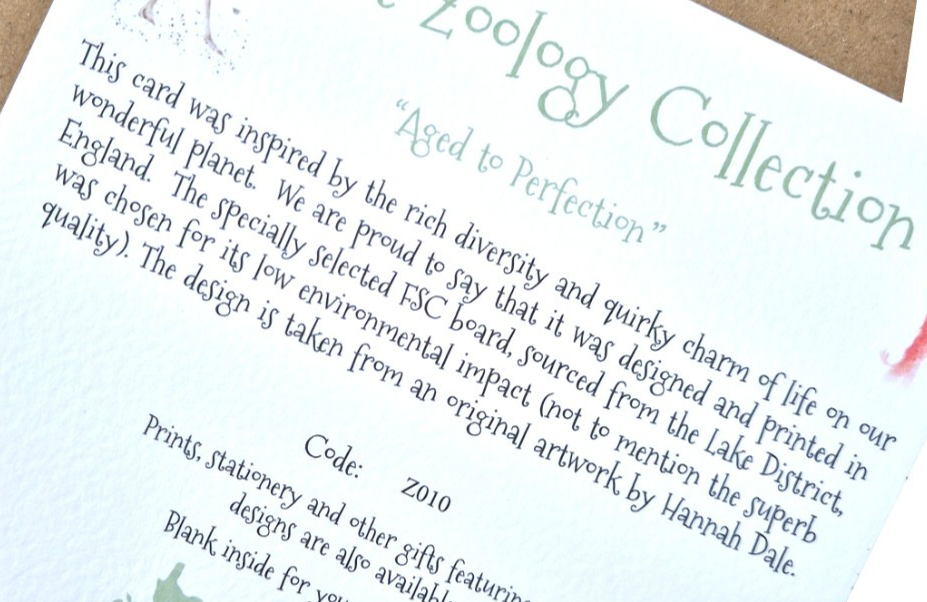 Zoology Collection
"Aged to Perfection"
This card was inspired by the rich diversity and quirky charm of life on our
wonderful planet. We are proud to say that it was designed and printed in
England. The specially selected FSC board, sourced from the Lake District,
was chosen for its low environmental impact (not to mention the superb
quality). The design is taken from an original artwork by Hannah Dale.
Code: Z010
Prints, stationery and other gifts
designs are also
Blank inside for